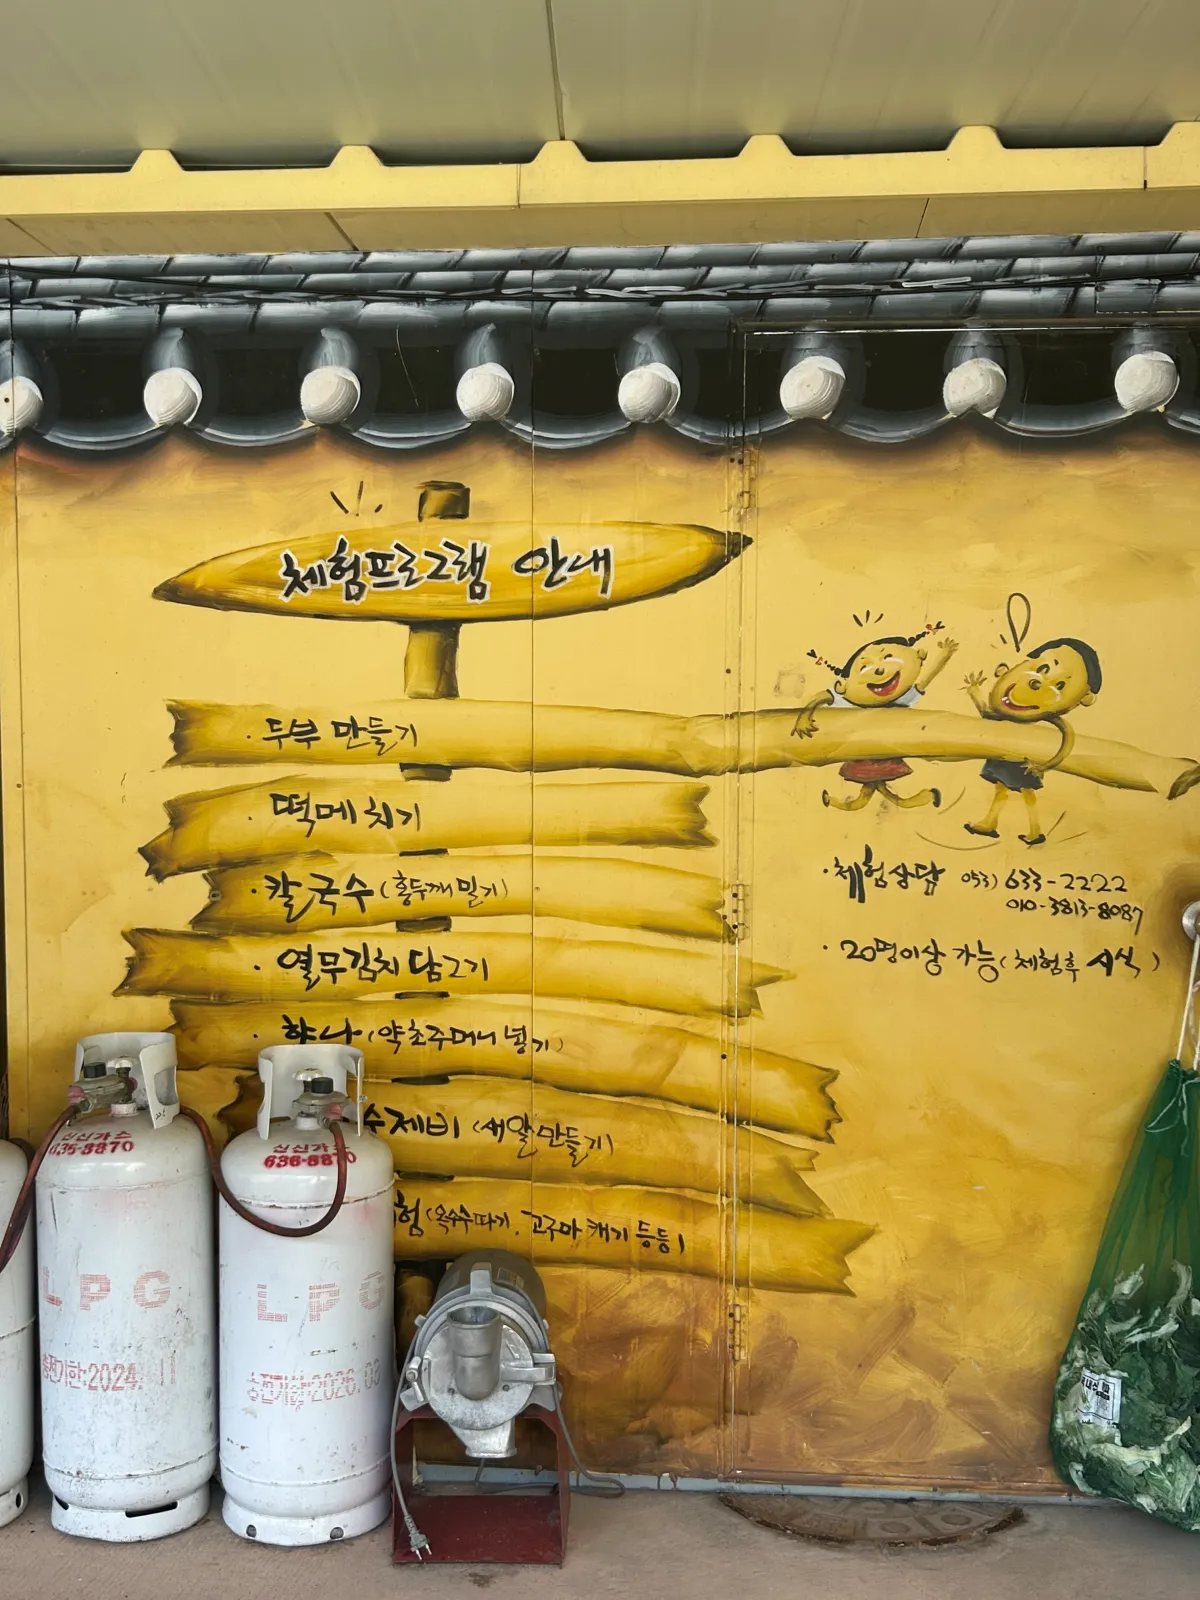 체험프로그램 안내
· 두부 만들기
· 떡메 치기
· 칼국수 (홍두깨 밀기)
· 열무김치 담그기
· 향낭 (약초주머니 넣기)
수제비 (새알만들기)
험 (옥수수따기, 고구마 캐기 등등)
· 체험상담 053) 633-2222
010-3813-8087
· 20명이상 가능 (체험후 시식)
신신가스
635-8870
LPG
충전기한:2024. 11
신신가스
636-8870
LPG
충전기한:2026.02